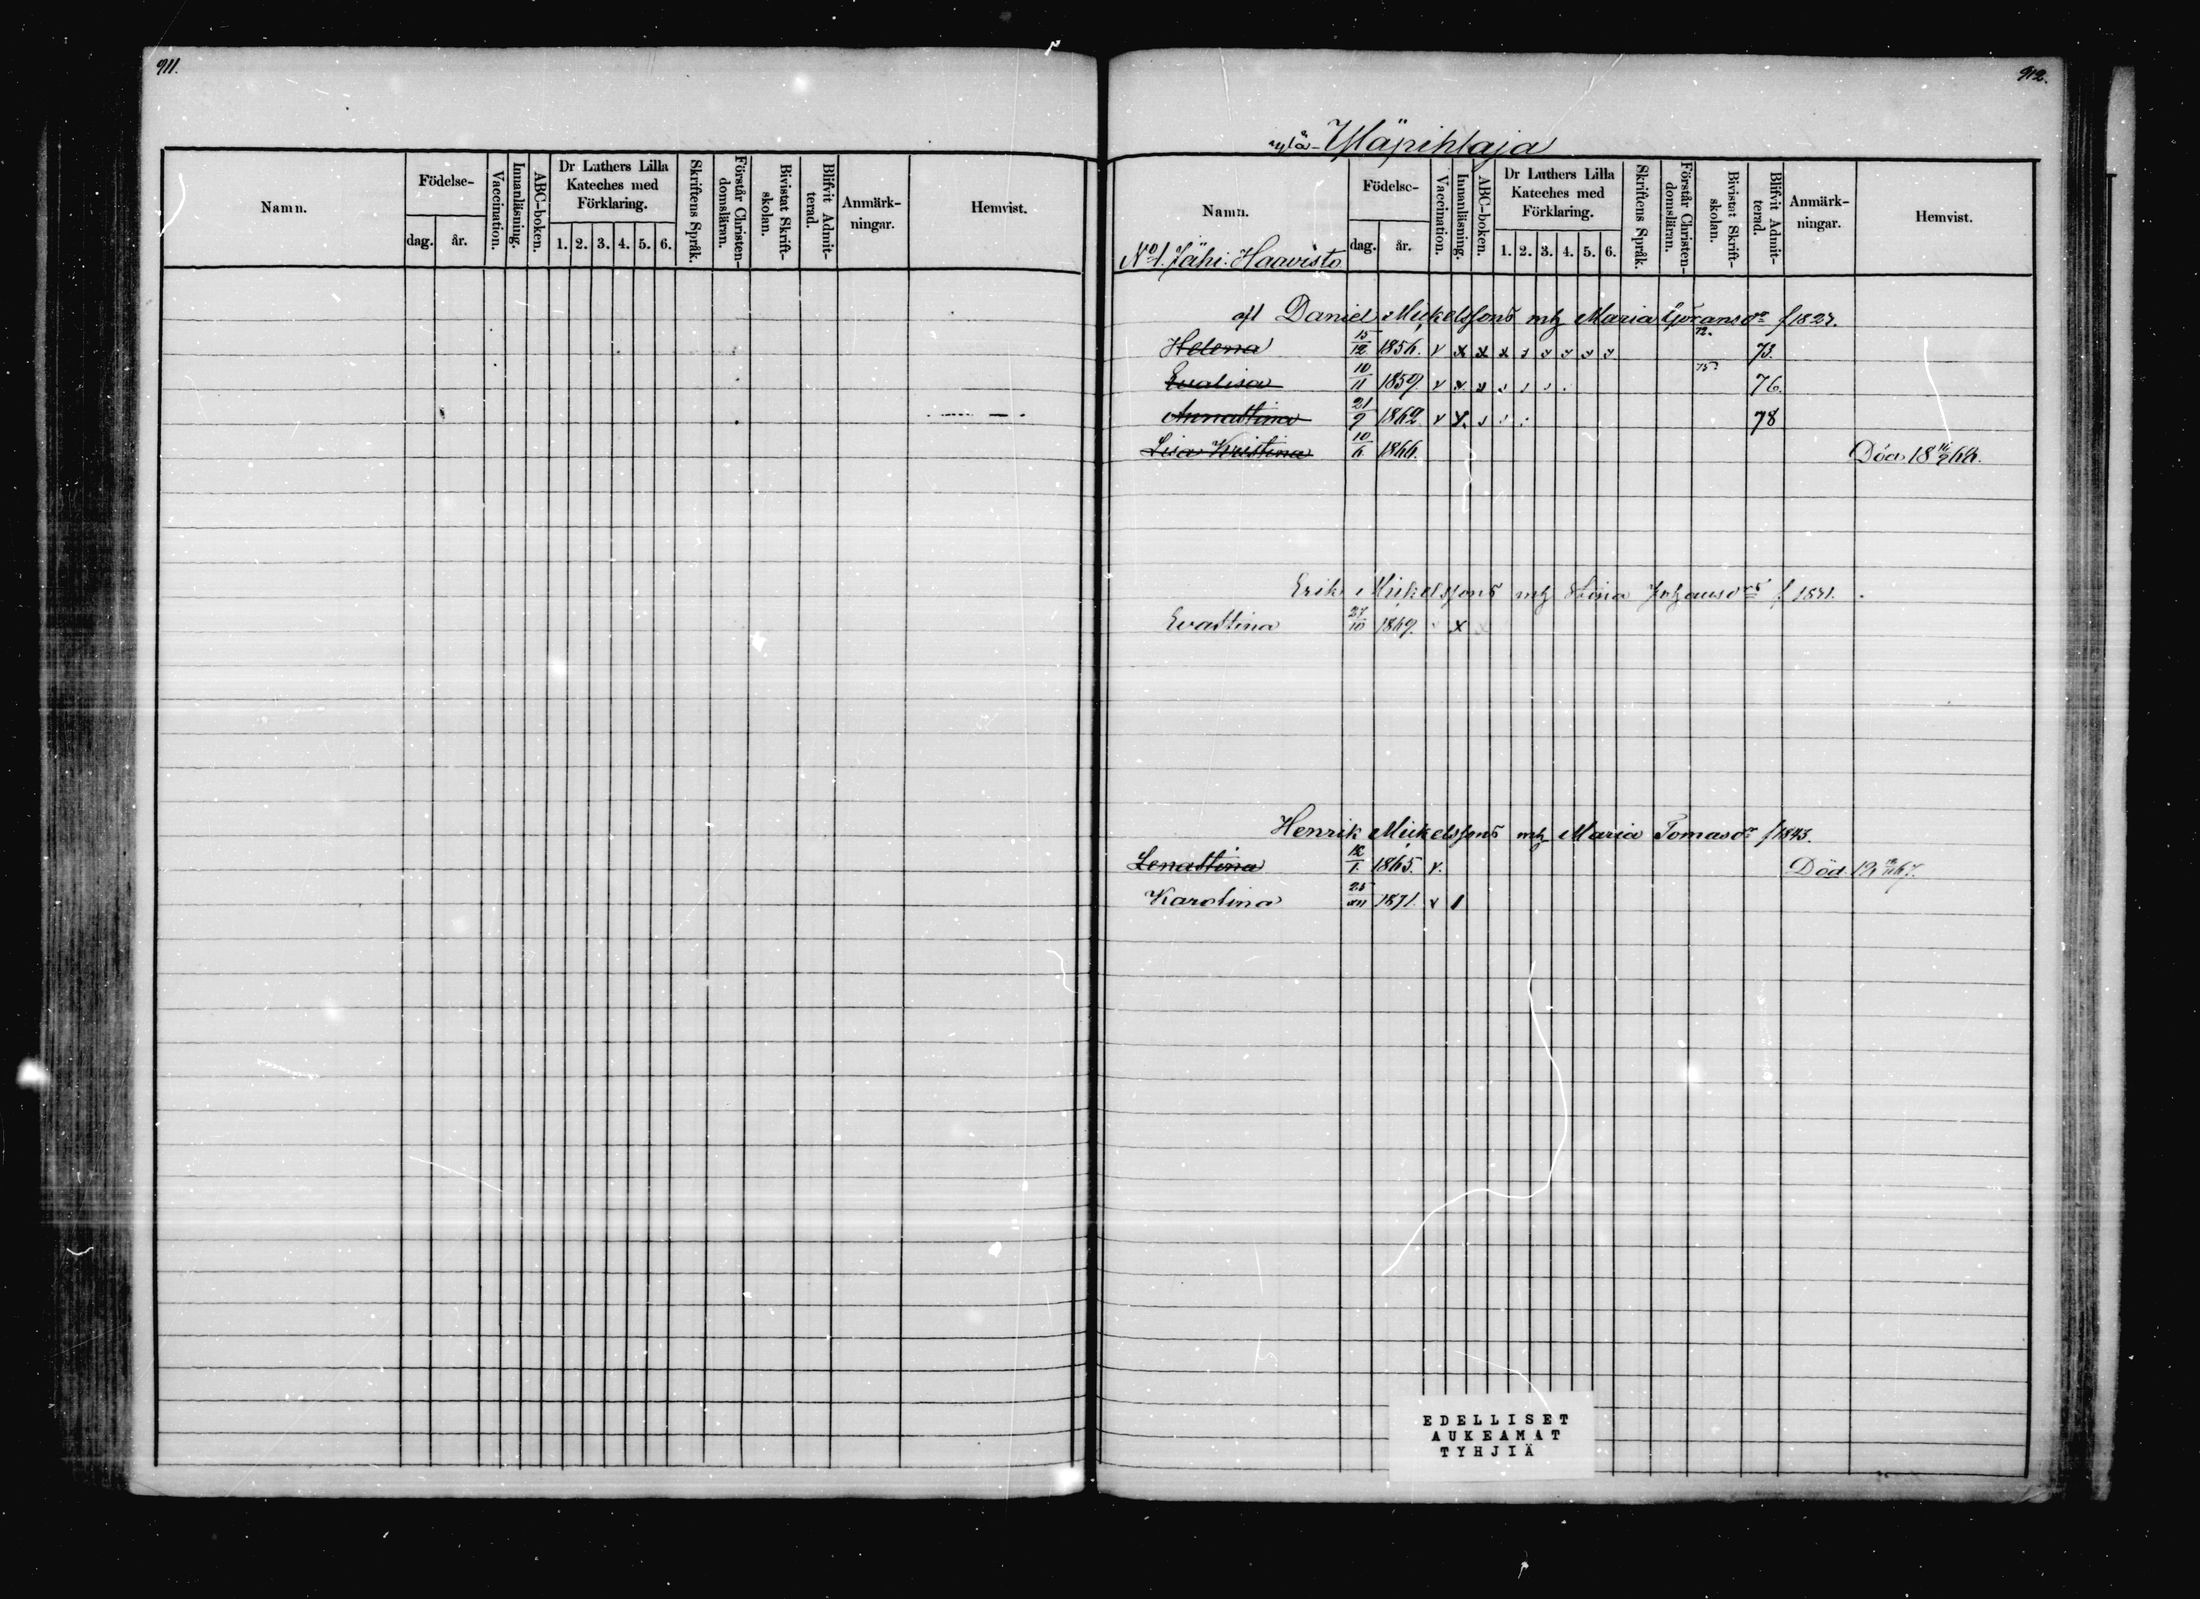 911.
Namn. Födelse- dag. år. Vaccination. Innanläsning. ABC-boken. Dr Luthers Lilla Kateches med Förklaring. 1. 2. 3. 4. 5. 6. Skriftens Språk. Förstår Christendomsläran. Bivistat Skriftskolan. Blifvit Admitterad. Anmärkningar. Hemvist.
912.
Yläpihlaja
Namn. Födelse- dag. år. Vaccination. Innanläsning. ABC-boken. Dr Luthers Lilla Kateches med Förklaring. 1. 2. 3. 4. 5. 6. Skriftens Språk. Förstår Christendomsläran. Bivistat Skriftskolan. Blifvit Admitterad. Anmärkningar. Hemvist.
No 1. Jähi: Haavisto
aft Daniel Mickelssons Maria Göransdr f 1827.
Helena 15/12 1856. v x x x 72. 73.
Evalisa 10/11 1859. v x x 75 76.
Annastina 21/9 1862 v x 78
Lisa Kristina 10/6 1866. Död 18 66.
Erik Mickelssons Stina f 1841.
Evastina 27/10 1869. x x
Henrik Mickelssons Maria Tomasdr f 1843.
Lenastina 12/1 1865. v. Död 67.
Karolina 25/XII 1871. v 1
EDELLISET
AUKEAMAT
TYHJIÄ